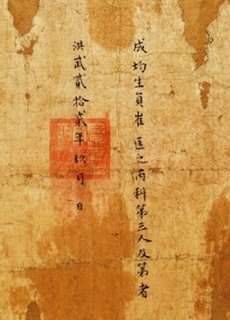 成均生員崔匡之丙科第三人及第者
洪武貳拾貳年玖月 日